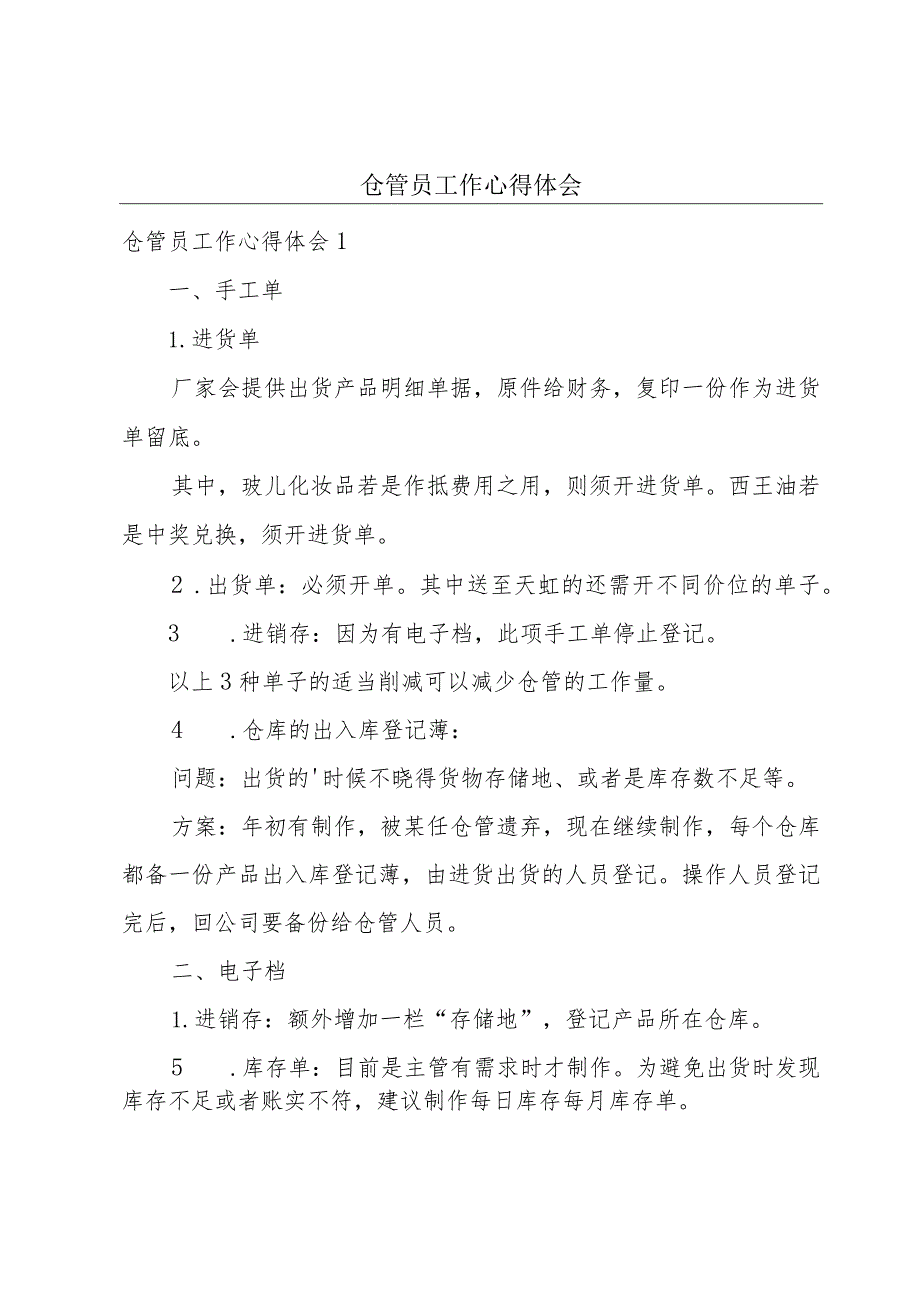 仓管员工作心得体会
仓管员工作心得体会1
一、手工单
1.进货单
厂家会提供出货产品明细单据，原件给财务，复印一份作为进货
单留底。
其中，玻儿化妆品若是作抵费用之用，则须开进货单。西王油若
是中奖兑换，须开进货单。
2.出货单：必须开单。其中送至天虹的还需开不同价位的单子。
3 .进销存：因为有电子档，此项手工单停止登记。
以上3种单子的适当削减可以减少仓管的工作量。
4 .仓库的出入库登记薄：
问题：出货的'时候不晓得货物存储地、或者是库存数不足等。
方案：年初有制作，被某任仓管遗弃，现在继续制作，每个仓库
都备一份产品出入库登记薄，由进货出货的人员登记。操作人员登记
完后，回公司要备份给仓管人员。
二、电子档
1.进销存：额外增加一栏“存储地”，登记产品所在仓库。
5 .库存单：目前是主管有需求时才制作。为避免出货时发现
库存不足或者账实不符，建议制作每日库存每月库存单。